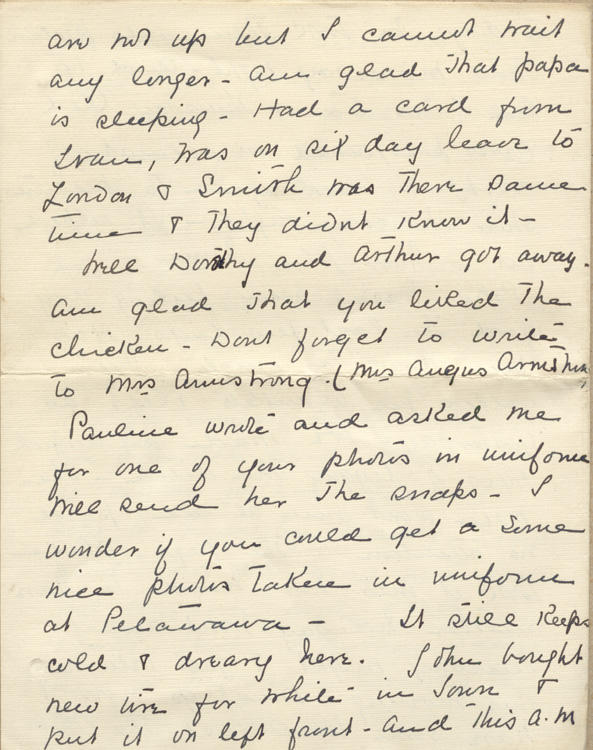 are not up but I cannot wait
any longer - am glad that papa
is sleeping - Had a card from
Ivan, was on six day leave to
London & Smith was there same
time & They didnt know it -
Well Dorothy and Arthur got away.
am glad that you liked the
chicken - Dont forget to write
to Mrs Armstrong. (Mrs Angus Armstrong
Pauline wrote and asked me
for one of your photos in uniform
Will send her the snaps - I
wonder if you could get a some
nice photos taken in uniform
at Petawawa - It still keeps
cold & dreary here. John bought
new tire for while in town &
put it on left front - and this a.m